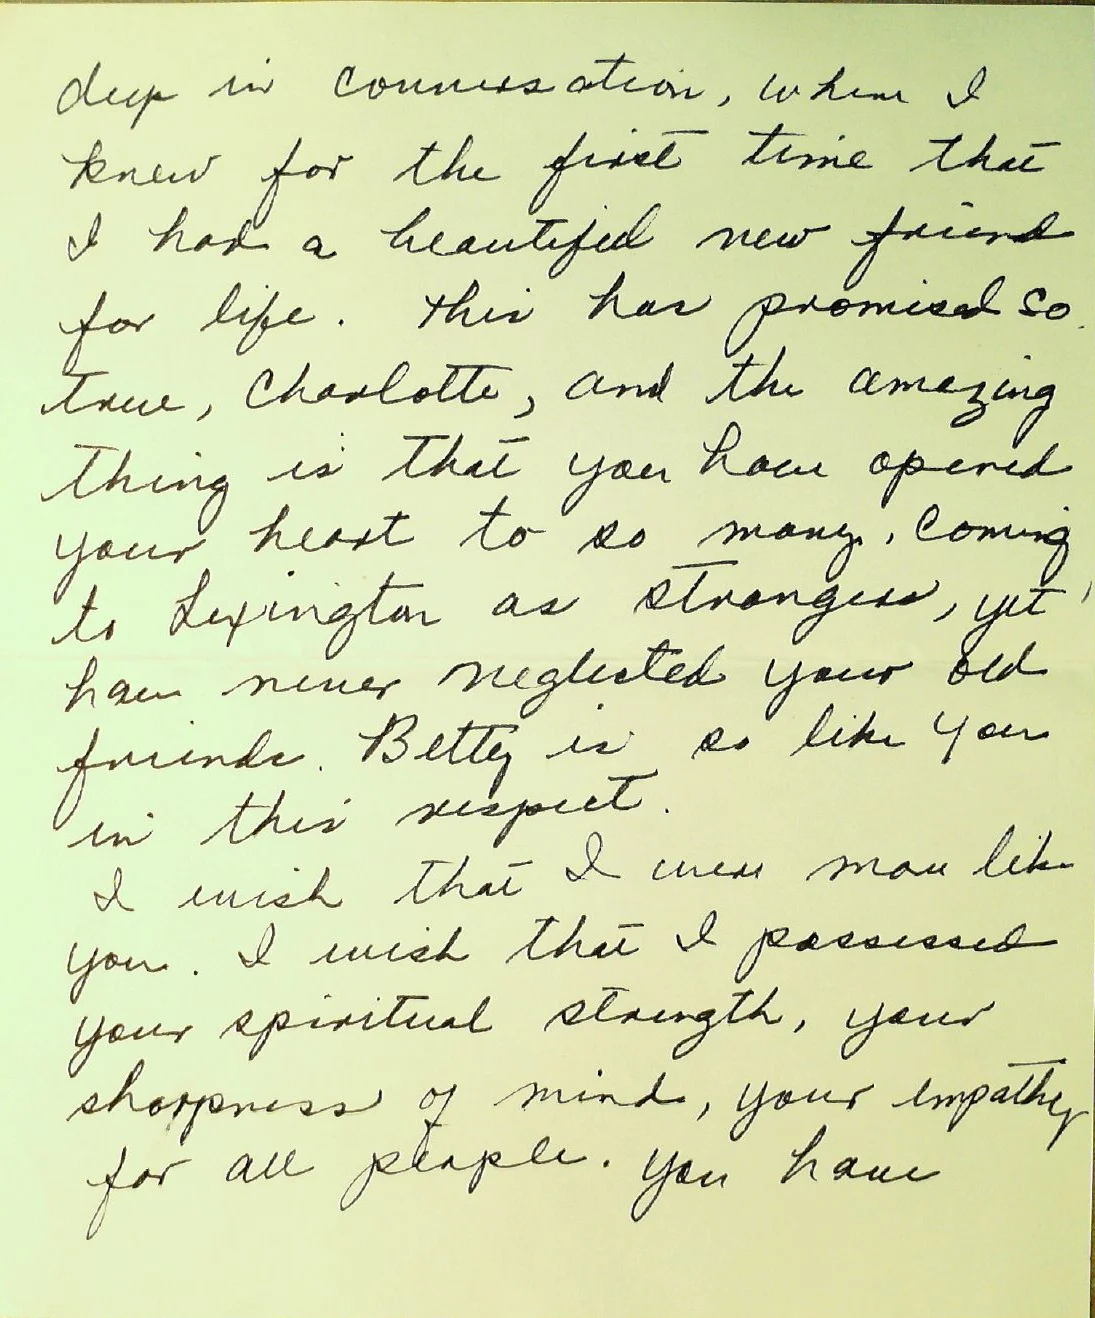 deep in conversation, when I
knew for the first time that
I had a beautiful new friend
for life. This has promised so
true, Charlotte, and the amazing
thing is that you have opened
your heart to so many. Coming
to Lexington as strangers, yet
have never neglected your old
friends. Betty is so like you
in this respect.
I wish that I were more like
you. I wish that I possessed
your spiritual strength, your
sharpness of mind, your empathy
for all people. You have